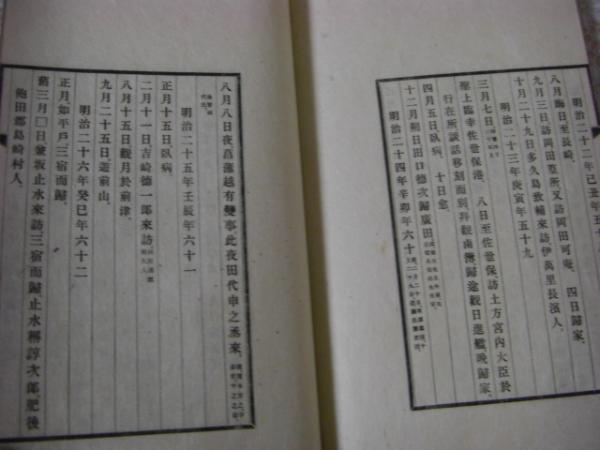 明治二十二年己丑年五十
八月晦日至長崎、
九月三日訪岡田篁所又訪岡田可菴、四日歸家、
十月二十九日多久島致輔來訪伊萬里長濱人、
明治二十三年庚寅年五十九
三月七日
聖上臨幸佐世保港、八日至佐世保訪土方宮内大臣於
行在所談話移刻而別拜觀南灣歸途觀日進艦晩歸家、
四月五日臥病、十日愈、
十二月朔日田口德次歸廣田
明治二十四年辛卯年六十
八月八日夜菖蒲越有變事此夜田代申之丞來、
明治二十五年壬辰年六十一
正月十五日臥病
二月十一日吉崎德一郎來訪
八月十五日觀月於前津、
九月二十五日遊前山、
明治二十六年癸巳年六十二
正月如平戸三宿而歸、
舊三月□日兼坂止水來訪三宿而歸止水稱諄次郎、肥後
飽田郡島崎村人、